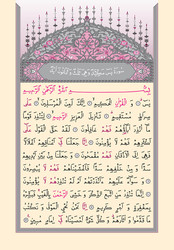 سورة يس مكية وهي ثلاث وثمانون آية
بِسْمِ اللّٰهِ الرَّحْمٰنِ الرَّحِيمِ
يٰسۤ وَالْقُرْاٰنِ الْحَكِيمِ اِنَّكَ لَمِنَ الْمُرْسَلِينَ عَلٰى
صِرَاطٍ مُسْتَقِيمٍ تَنْزِيلَ الْعَزِيزِ الرَّحِيمِ لِتُنْذِرَ قَوْمًا
مَا اُنْذِرَ اٰبَاؤُهُمْ فَهُمْ غَافِلُونَ لَقَدْ حَقَّ الْقَوْلُ عَلٰى
اَكْثَرِهِمْ فَهُمْ لَا يُؤْمِنُونَ اِنَّا جَعَلْنَا فِى اَعْنَاقِهِمْ اَغْلَالًا
فَهِىَ اِلَى الْاَذْقَانِ فَهُمْ مُقْمَحُونَ وَجَعَلْنَا مِنْ بَيْنِ اَيْدِيهِمْ
سَدًّا وَمِنْ خَلْفِهِمْ سَدًّا فَاَغْشَيْنَاهُمْ فَهُمْ لَا يُبْصِرُونَ
وَسَوَاءٌ عَلَيْهِمْ ءَاَنْذَرْتَهُمْ اَمْ لَمْ تُنْذِرْهُمْ لَا يُؤْمِنُونَ
اِنَّمَا تُنْذِرُ مَنِ اتَّبَعَ الذِّكْرَ وَخَشِىَ الرَّحْمٰنَ بِالْغَيْبِ فَبَشِّرْهُ
بِمَغْفِرَةٍ وَاَجْرٍ كَرِيمٍ اِنَّا نَحْنُ نُحْيِى الْمَوْتٰى وَنَكْتُبُ
مَا قَدَّمُوا وَاٰثَارَهُمْ وَكُلَّ شَىْءٍ اَحْصَيْنَاهُ فِى اِمَامٍ مُبِينٍ